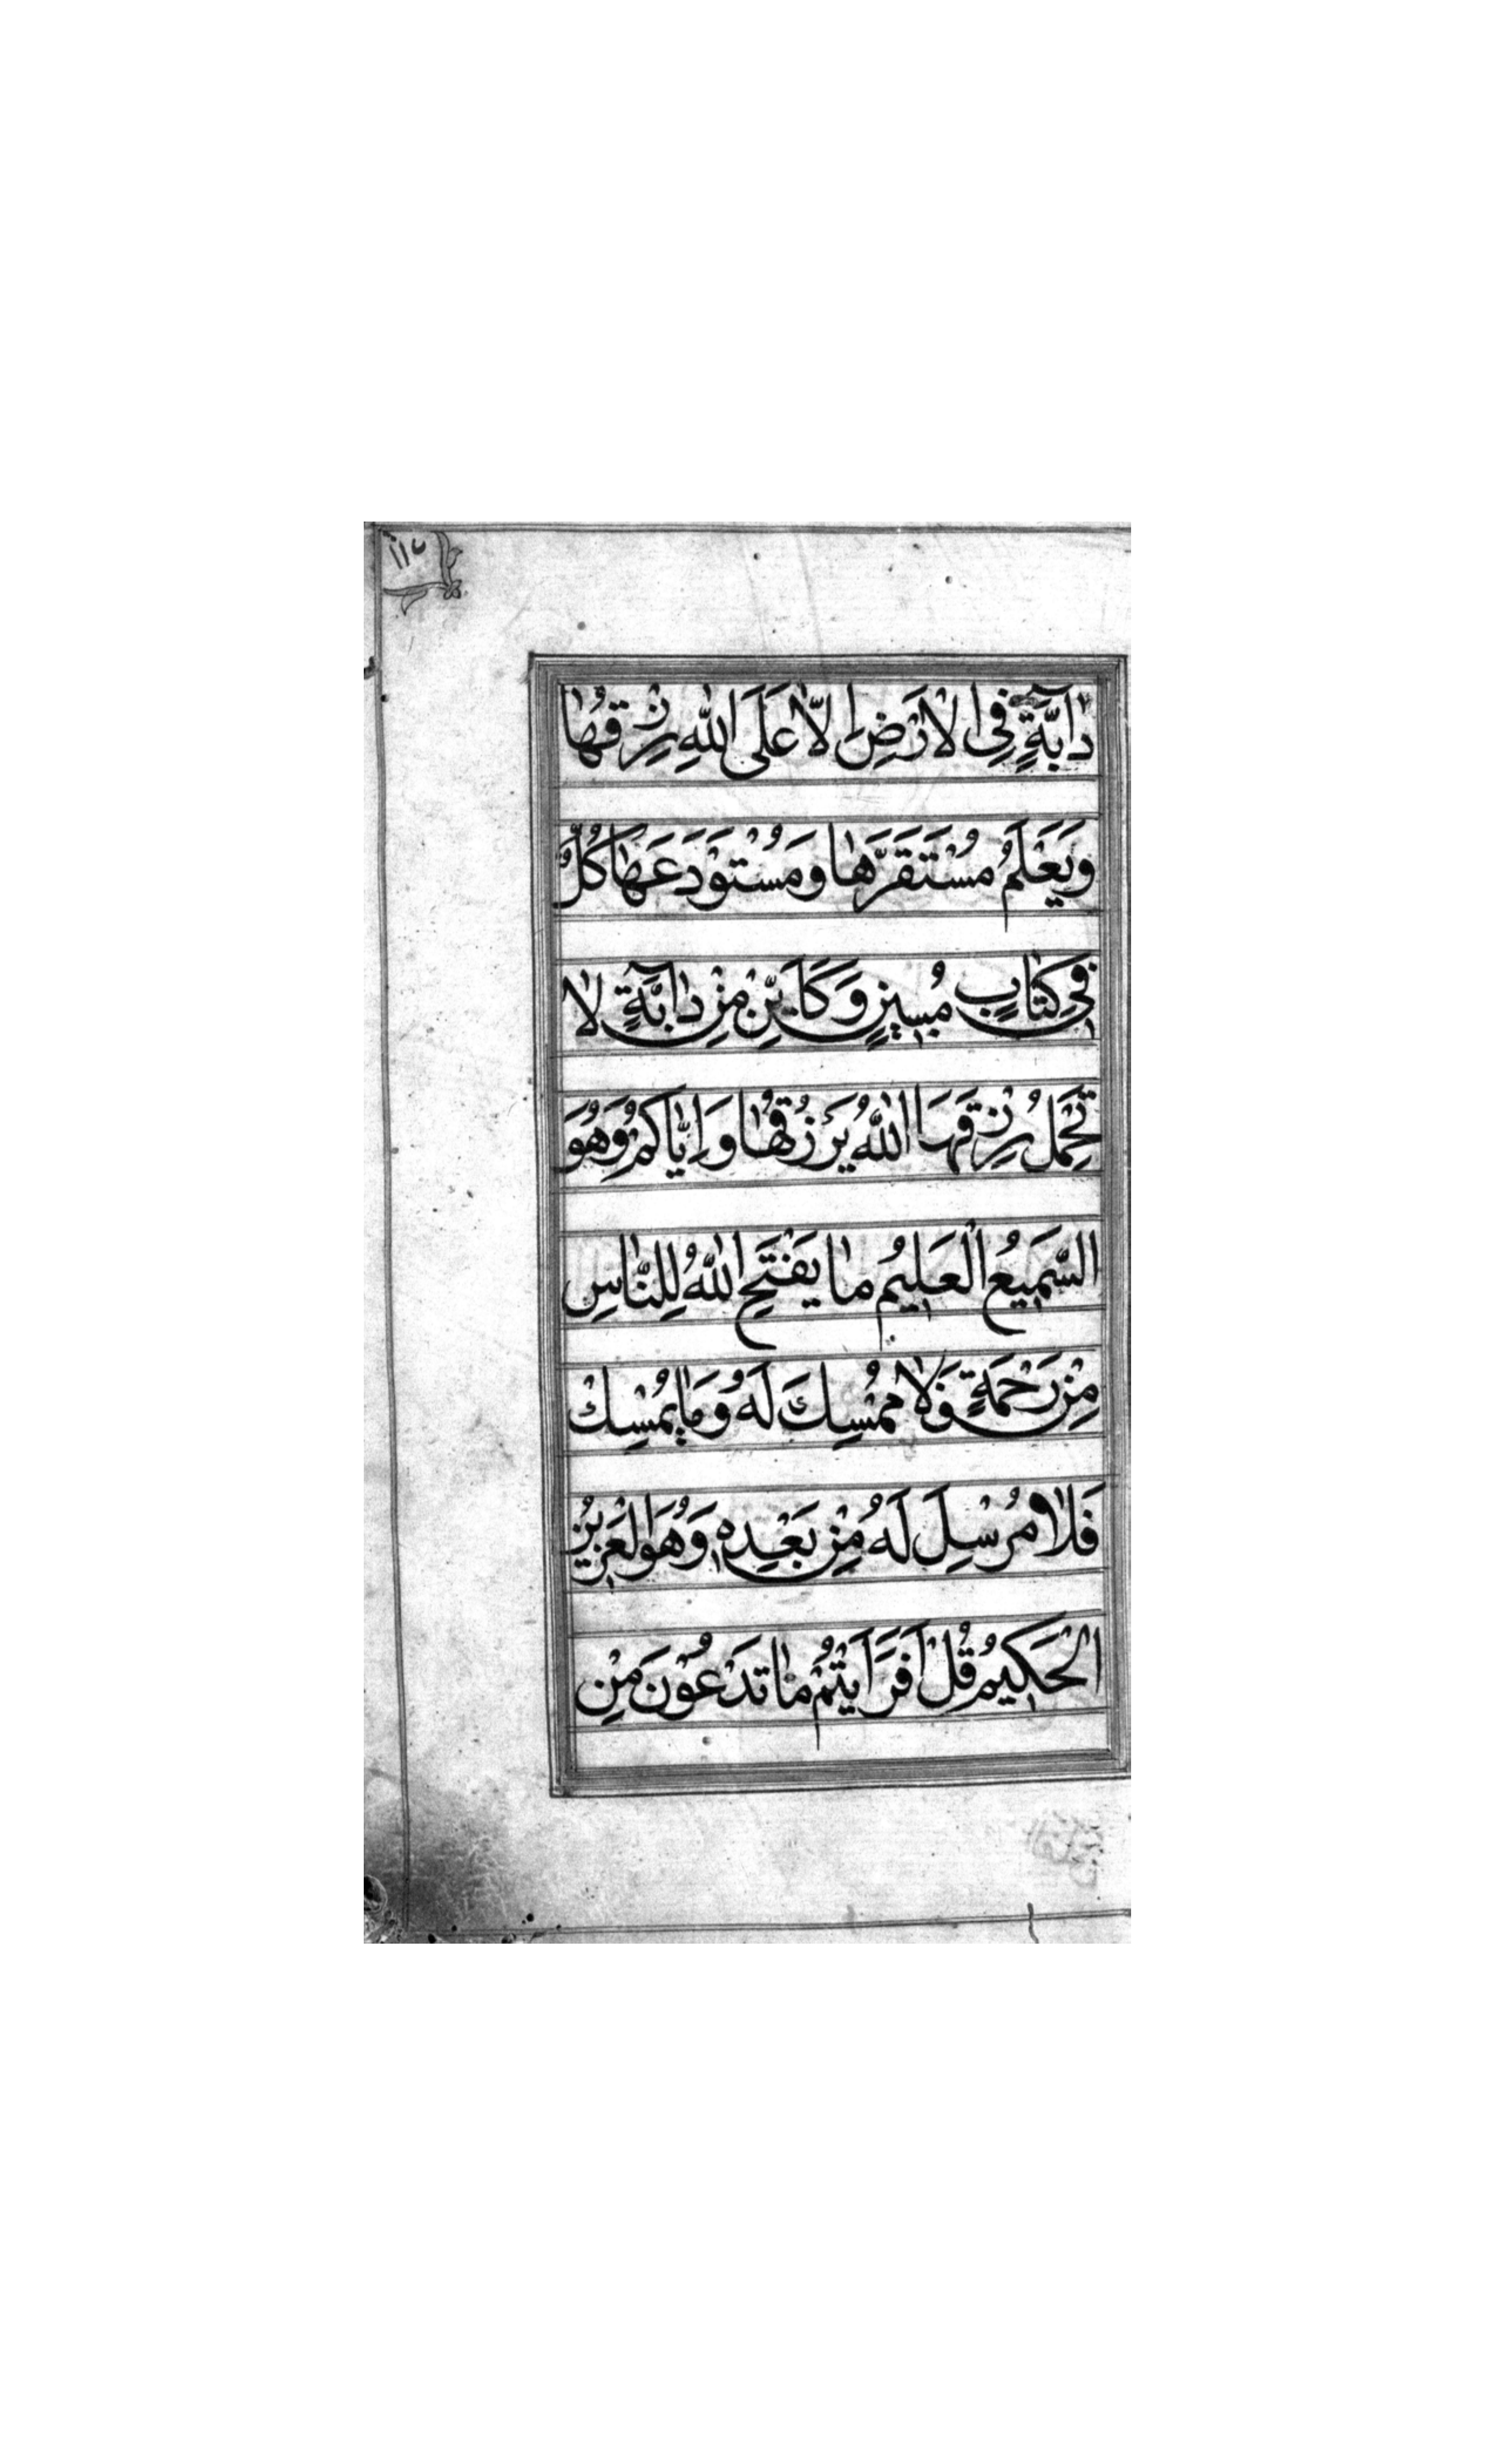 دابَّةٍ فِى الْاَرْضِ اِلّا عَلَى اللّٰهِ رِزْقُهٰا
وَيَعْلَمُ مُسْتَقَرَّهٰا وَمُسْتَوْدَعَهٰا كُلٌّ
فِى كِتٰابٍ مُبينٍ وَكَاَيِّنْ مِنْ دٰابَّةٍ لٰا
تَحْمِلُ رِزْقَهَا اللّٰهُ يَرْزُقُهٰا وَاِيّٰاكُمْ وَهُوَ
السَّمِيعُ الْعَلِيمُ مٰا يَفْتَحِ اللّٰهُ لِلنّٰاسِ
مِنْ رَحْمَةٍ فَلٰا مُمْسِكَ لَهُ وَمٰا يُمْسِكْ
فَلٰا مُرْسِلَ لَهُ مِنْ بَعْدِهِ وَهُوَ الْعَزِيزُ
الْحَكِيمُ قُلْ اَفَرَاَيْتُمْ مٰا تَدْعُونَ مِنْ